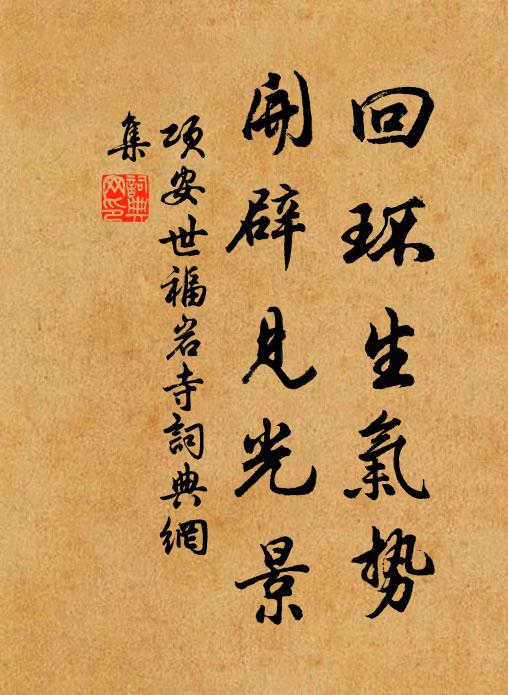 回环生氣势
開辟見光景
項安世福岩寺詞典網
集
詞典
网印